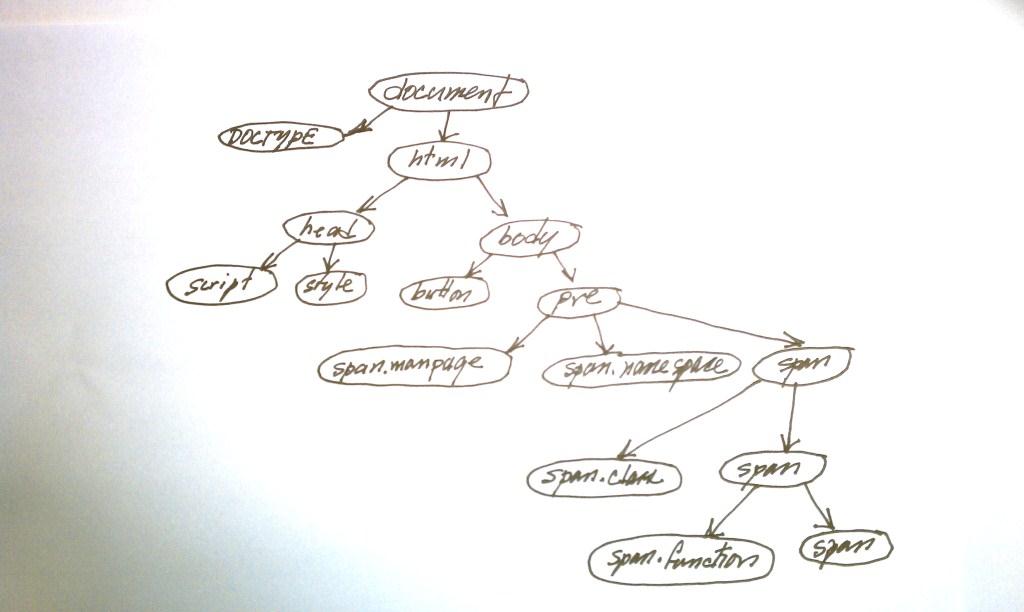 document
DOCTYPE
html
head
body
script
style
button
pre
span.manpage
span.namespace
span
span.class
span
span.function
span